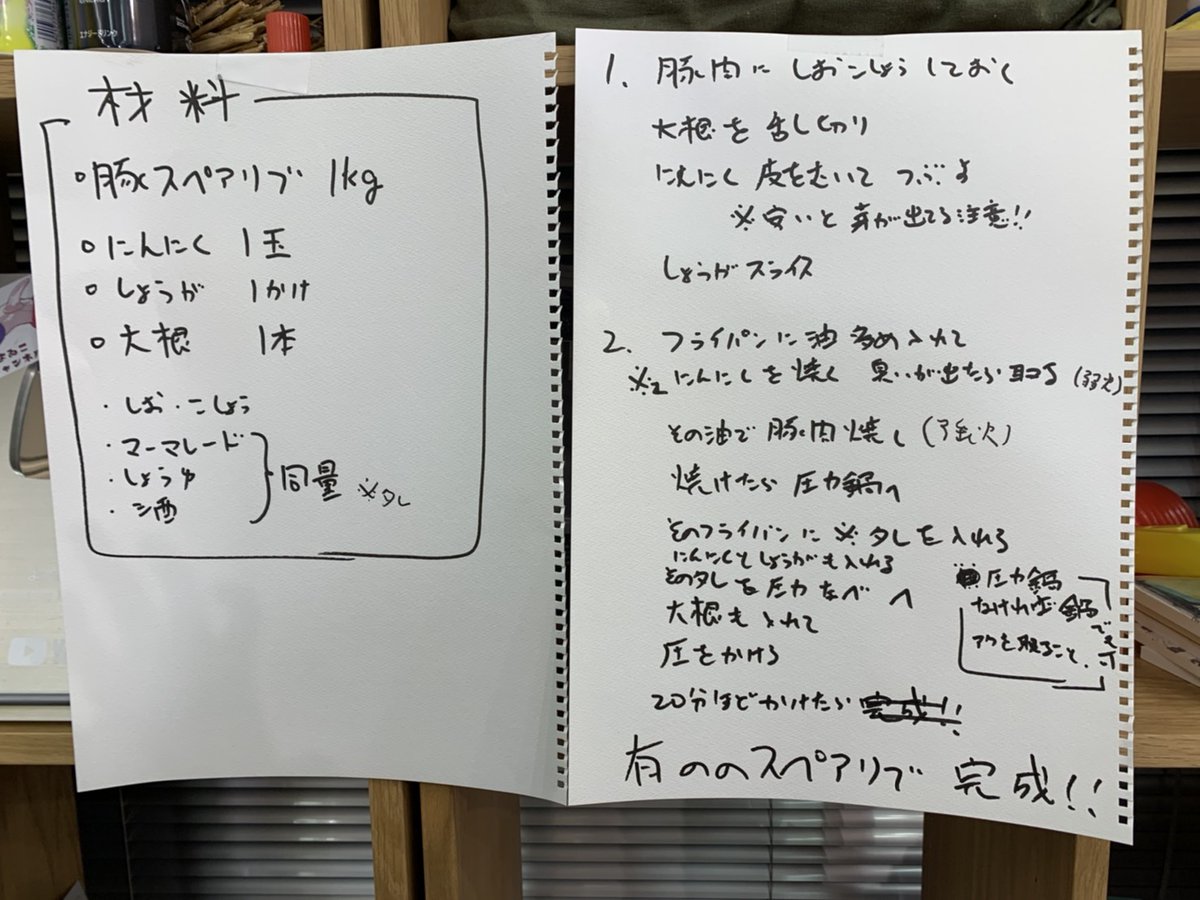 エナジードリンク
材料
豚スペアリブ 1kg
にんにく 1玉
しょうが 1かけ
大根 1本
・しお・こしょう
・マーマレード
・しょうゆ
・酒
同量 ※タレ
1. 豚肉に しおこしょう しておく
大根を 乱切り
にんにく 皮をむいて つぶす
※安いと 芽が出てる注意!!
しょうがスライス
2. フライパンに油 多め入れて
にんにくを 焼く 臭いが出たら 取る (弱火)
その油で 豚肉焼く (強火)
焼けたら 圧力鍋へ
そのフライパンに ※タレを入れる
にんにくとしょうがも入れる
そのタレを圧力なべへ
大根も入れて
圧をかける
20分ほどかけたら 完成!!
圧力鍋
なければ 鍋
でもOK
アクを取ること、
有ののスペアリブ 完成!!